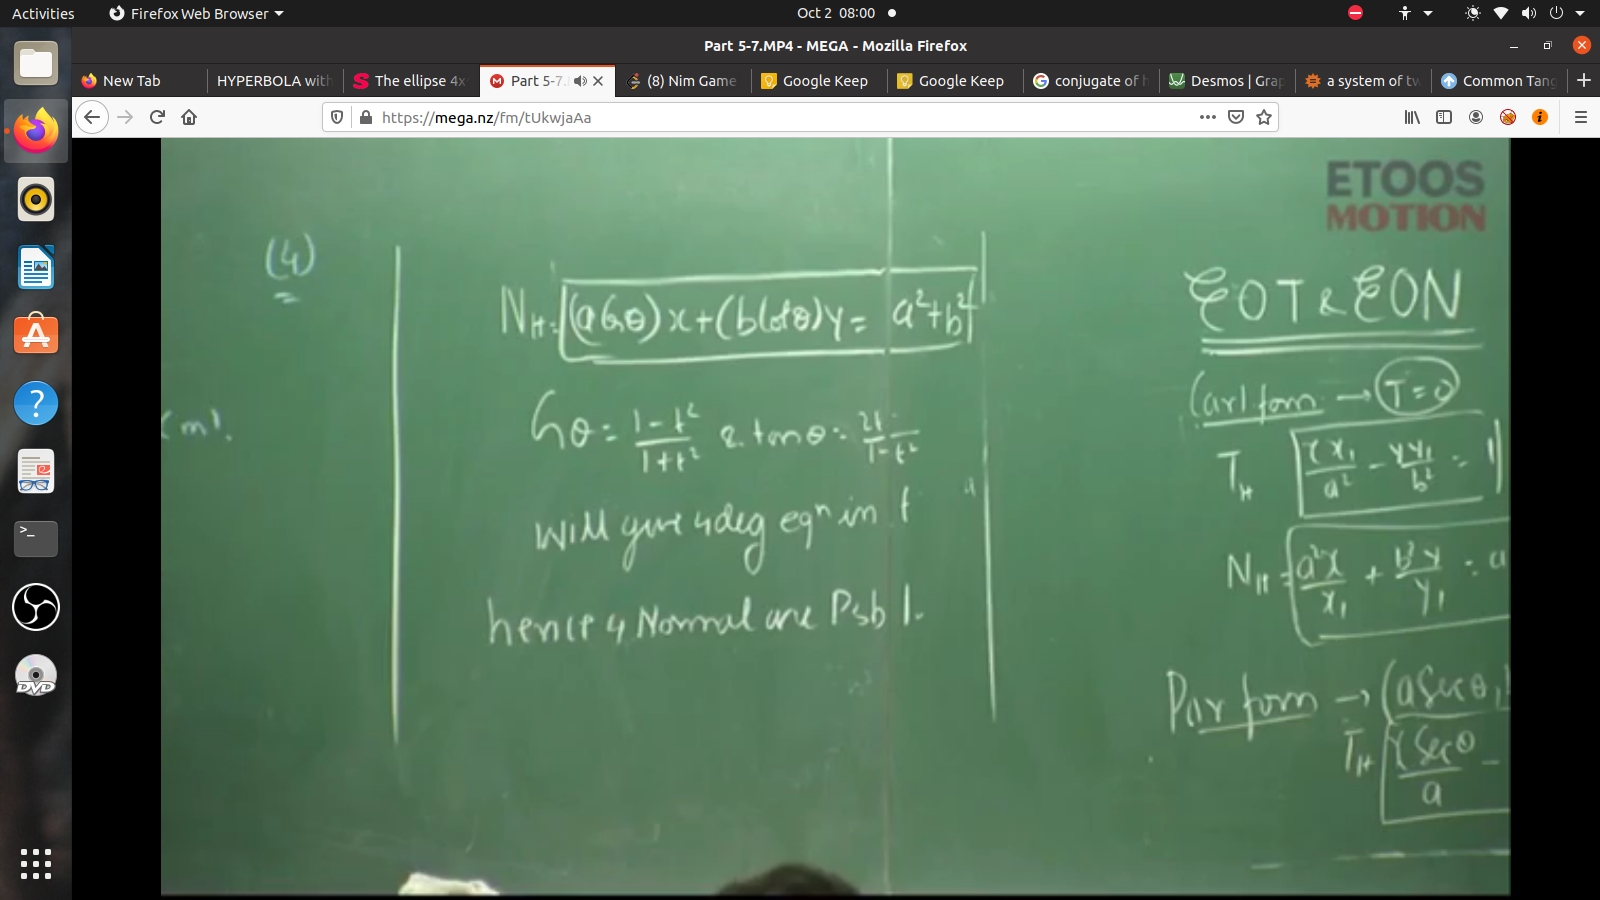 Activities
Firefox Web Browser
Oct 2 08:00
Part 5-7.MP4 - MEGA - Mozilla Firefox
New Tab
HYPERBOLA with
The ellipse 4x
Part 5-7.
(8) Nim Game
Google Keep
Google Keep
conjugate of h
Desmos | Grap
a system of tw
Common Tang
https://mega.nz/fm/tUkwjaAa
ETOOS
MOTION
(4)
N_H = (a cosθ)x + (b cotθ)y = a²+b²
Cosθ = 1-t²/1+t² & tanθ = 2t/1-t²
will give 4 deg eqⁿ in t
hence 4 Normal are Psbl.
(m).
EOT & EON
Cart form → T=0
T_H xx₁/a² - yy₁/b² = 1
N_H = a²x/x₁ + b²y/y₁ = a
Par form → (a secθ,
T_H x secθ/a -
>_
DVD